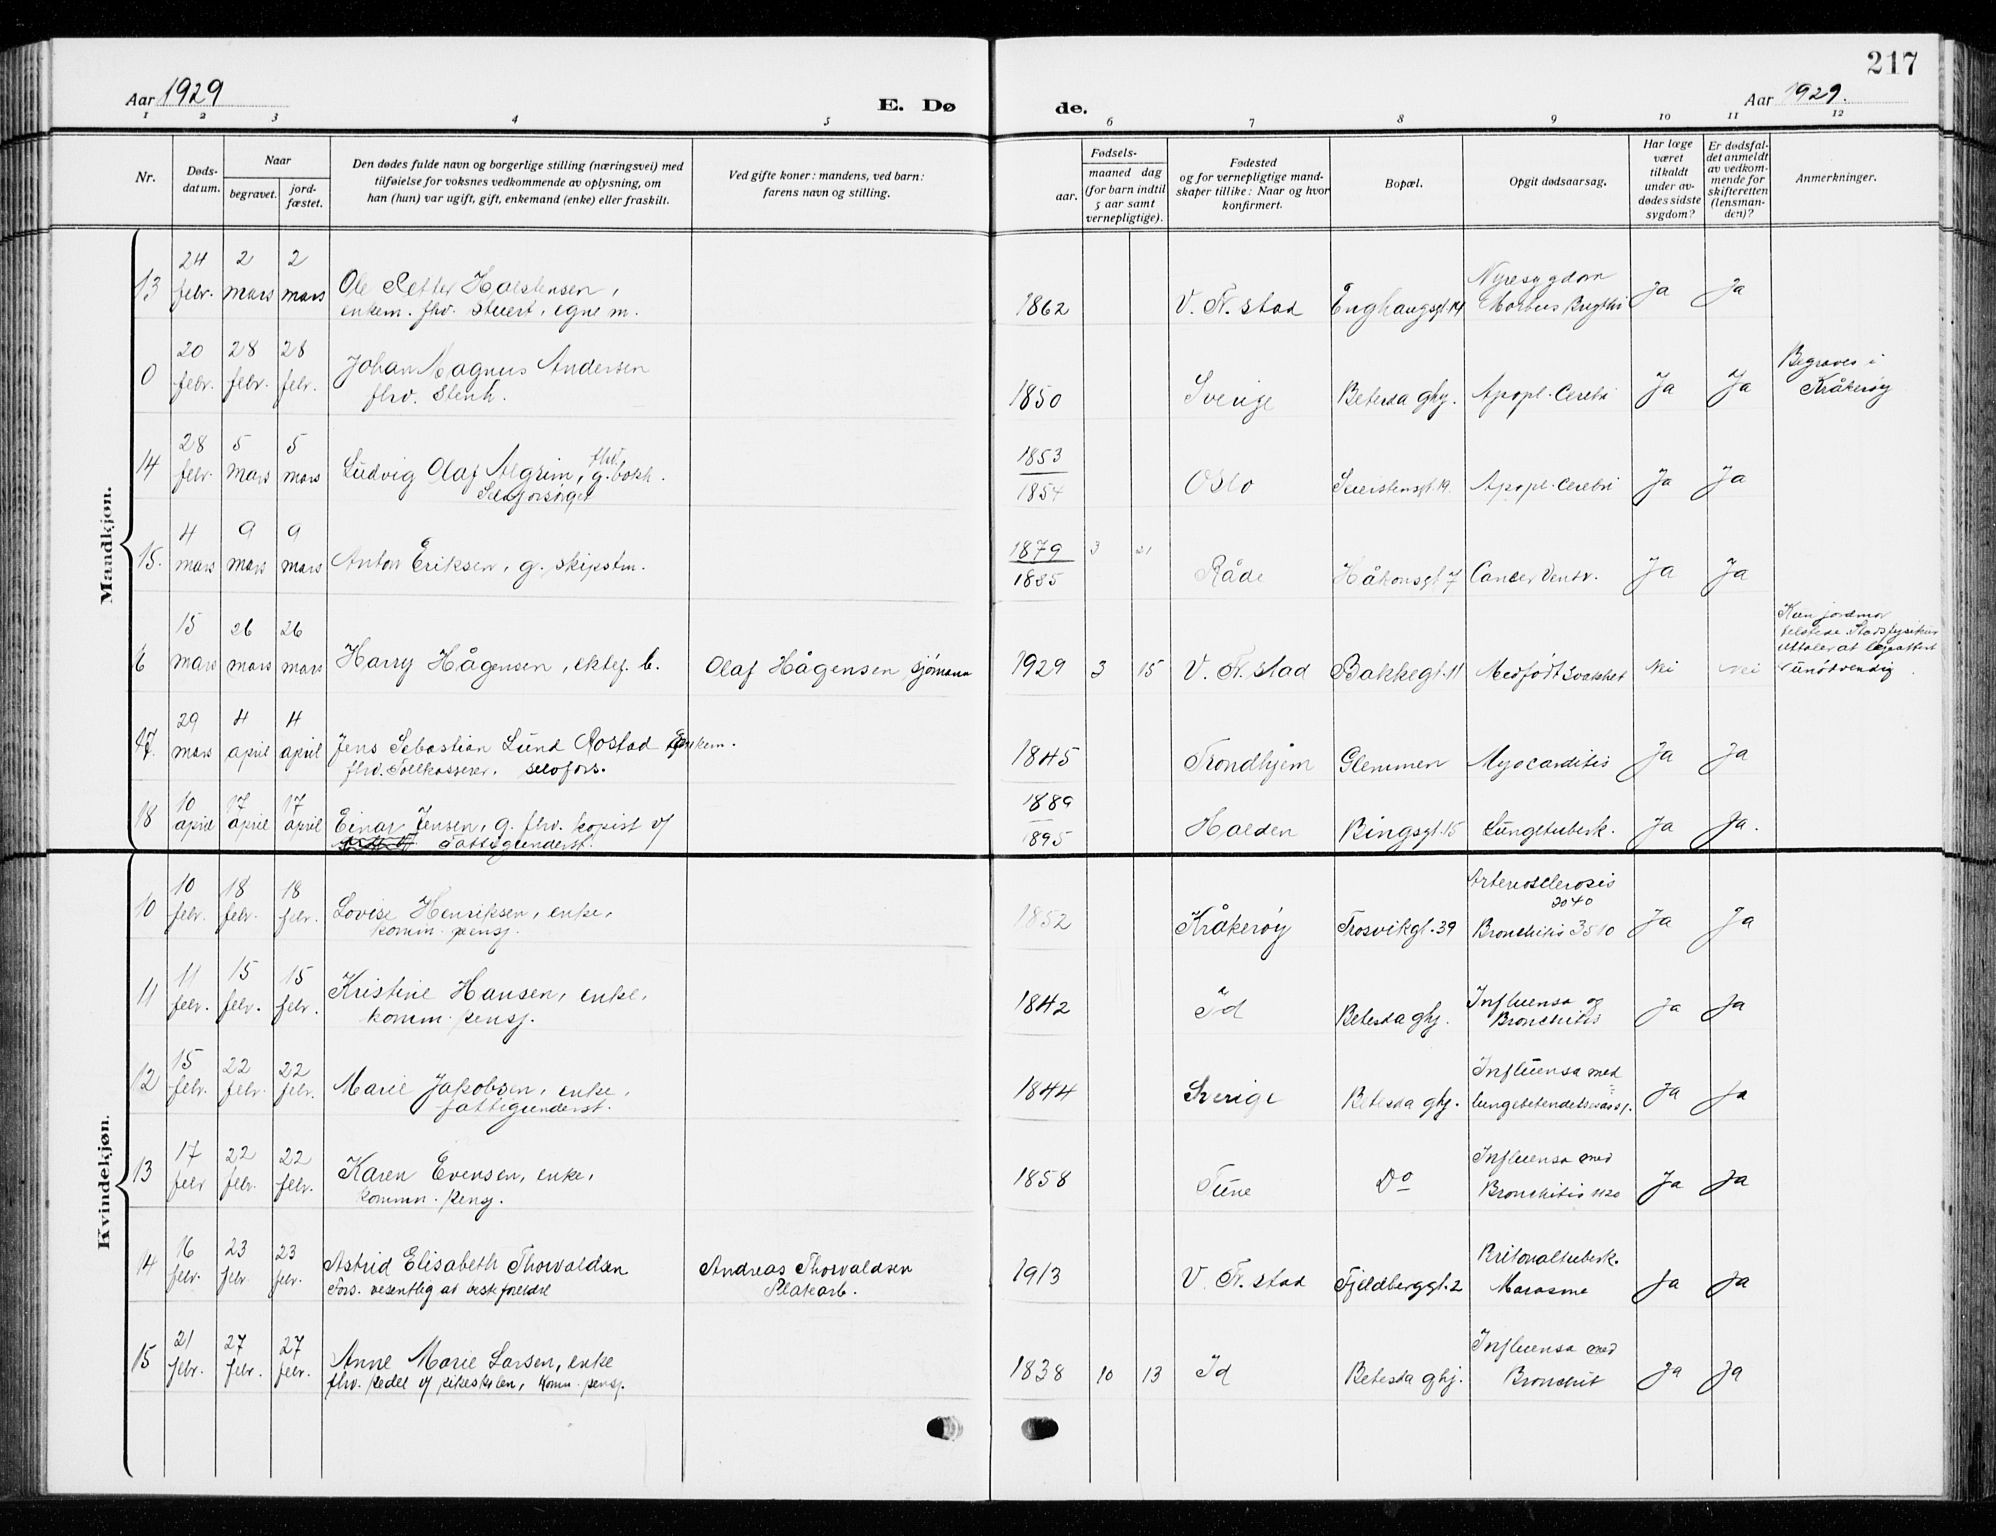 217
Aar 1929
E. Dø
de.
Aar 1929.
1 2 3 4 5 6 7 8 9 10 11 12
Nr.
Døds-
datum.
Naar
begravet.
jord-
fæstet.
Den dødes fulde navn og borgerlige stilling (næringsvei) med
tilføielse for voksnes vedkommende av oplysning, om
han (hun) var ugift, gift, enkemand (enke) eller fraskilt.
Ved gifte koner: mandens, ved barn:
farens navn og stilling.
Fødsels-
aar.
maaned dag
(for barn indtil
5 aar samt
vernepligtige).
Fødested
og for vernepligtige mand-
skaper tillike: Naar og hvor
konfirmert.
Bopæl.
Opgit dødsaarsag.
Har læge
været
tilkaldt
under av-
dødes sidste
sygdom?
Er dødsfal-
det anmeldt
av vedkom-
mende for
skifteretten
(lensman-
den)?
Anmerkninger.
Mandkjøn.
13 24 febr. 2 mars 2 mars
Ole Petter Halstensen,
enkem. fhv. stuert, egne m.
1862 V. Fr.stad Enghaugsgt. 14 Nyresygdom
Morbus Brigthi Ja Ja
0 20 febr. 28 febr. 28 febr.
Johan Magnus Andersen
fhv. Stenh.
1850 Sverige Betesda ghj. Apopl. Cerebri Ja Ja
Begraves i
Kråkerøy
14 28 febr. 5 mars 5 mars
Ludvig Olaf Algrim, fhv. g. bokh.
Selvforsørget
1853
1854 Oslo Apopl. Cerebri Ja Ja
15. 4 mars 9 mars 9 mars
Anton Eriksen, g. skipstm.
1879 3 21
1885 Råde Håkonsgt. 7 Cancer Ventr. Ja Ja
6 15 mars 26 mars 26 mars
Harry Hågensen, ektef. b. Olaf Hågensen sjømann
1929 3 15 V. Fr.stad Bakkegt. 11 Medfødt svakhet Nei Nei
Kun jordmor
tilstede. Stadsfysikus
uttaler at legeattest
unødvendig
17. 29 mars 4 april 4 april
Jens Sebastian Lund Rostad enkem.
fhv. Tollkasserer, selvfors.
1845 Trondhjem Glemmen Myocarditis Ja Ja
18 10 april 17 april 17 april
Einar Jensen, g. fhv. kopist v/
Fattigunderst.
1889
1895 Halden Bingsgt. 15 Lungetuberk. Ja Ja.
Kvindekjøn.
10 10 febr. 18 febr. 18 febr.
Lovise Henriksen, enke,
komm. pensj.
1852 Kråkerøy Trosvikgt. 39 Arteriosclerosis
2040
Bronchitis 3510 Ja Ja
11 11 febr. 15 febr. 15 febr.
Kristine Hansen, enke,
komm. pensj.
1842 Id Betesda ghj. Influensa og
Bronchitis Ja Ja
12 15 febr. 22 febr. 22 febr.
Marie Jakobsen, enke,
fattigunderst.
1844 Sverige Betesda ghj. Influensa med
Ja Ja
13 17 febr 22 febr. 22 febr.
Karen Evensen, enke,
komm. pensj.
1858 Tune Do Influensa med
Bronchitis 1120 Ja Ja
14 16 febr. 23 febr. 23 febr.
Astrid Elisabeth Thorvaldsen Andreas Thorvaldsen
Fors. vesentlig av besteforeldre Platearb.
1913 V. Fr.stad Fjeldberggt. 2 Pritonaltuberk.
Marasme Ja Ja
15 21 febr. 27 febr. 27 febr.
Anne Marie Larsen, enke
fhv. pedel v/ pikeskolen, komm. pensj.
1838 10 13 Id Betesda ghj. Influensa med
Bronchit Ja Ja